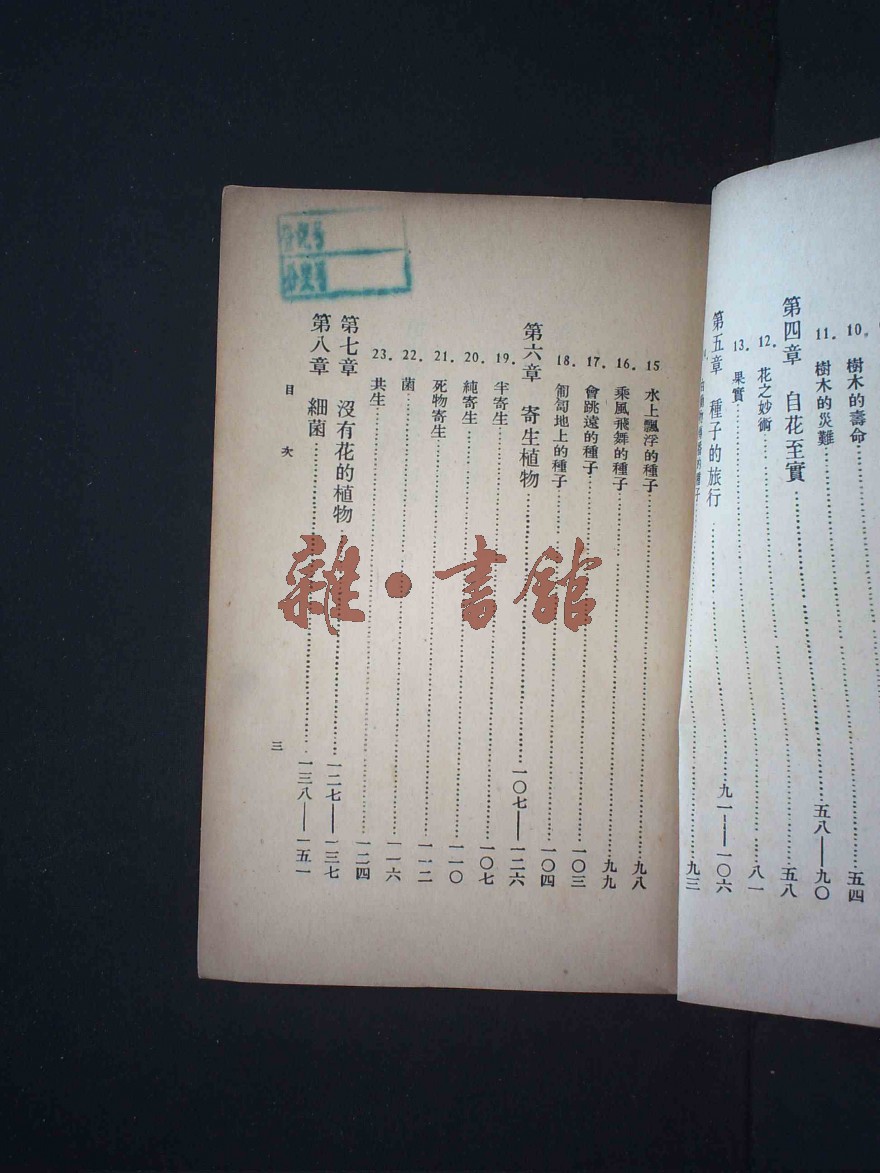 10. 樹木的壽命
11. 樹木的災難……五四
第四章 自花至實……五八——九〇
12. 花之妙術……五八
13. 果實……八一
第五章 種子的旅行……九一——一〇六
的種子……九三
15 水上飄浮的種子……九八
16. 乘風飛舞的種子……九九
17. 會跳遠的種子……一〇三
18. 匍匐地上的種子……一〇四
第六章 寄生植物……一〇七——一二六
19. 半寄生……一〇七
20. 純寄生……一一〇
21. 死物寄生……一一二
22. 菌……一一六
23. 共生……一二四
第七章 沒有花的植物……一二七——一三七
第八章 細菌……一三八——一五一
目次
三
雜·書館